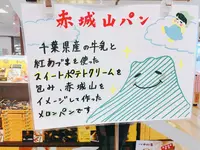 赤城山パン
千葉県産の牛乳と
紅あづまを使った
スイートポテトクリームを
包み、赤城山を
イメージして作った
メロンパンです